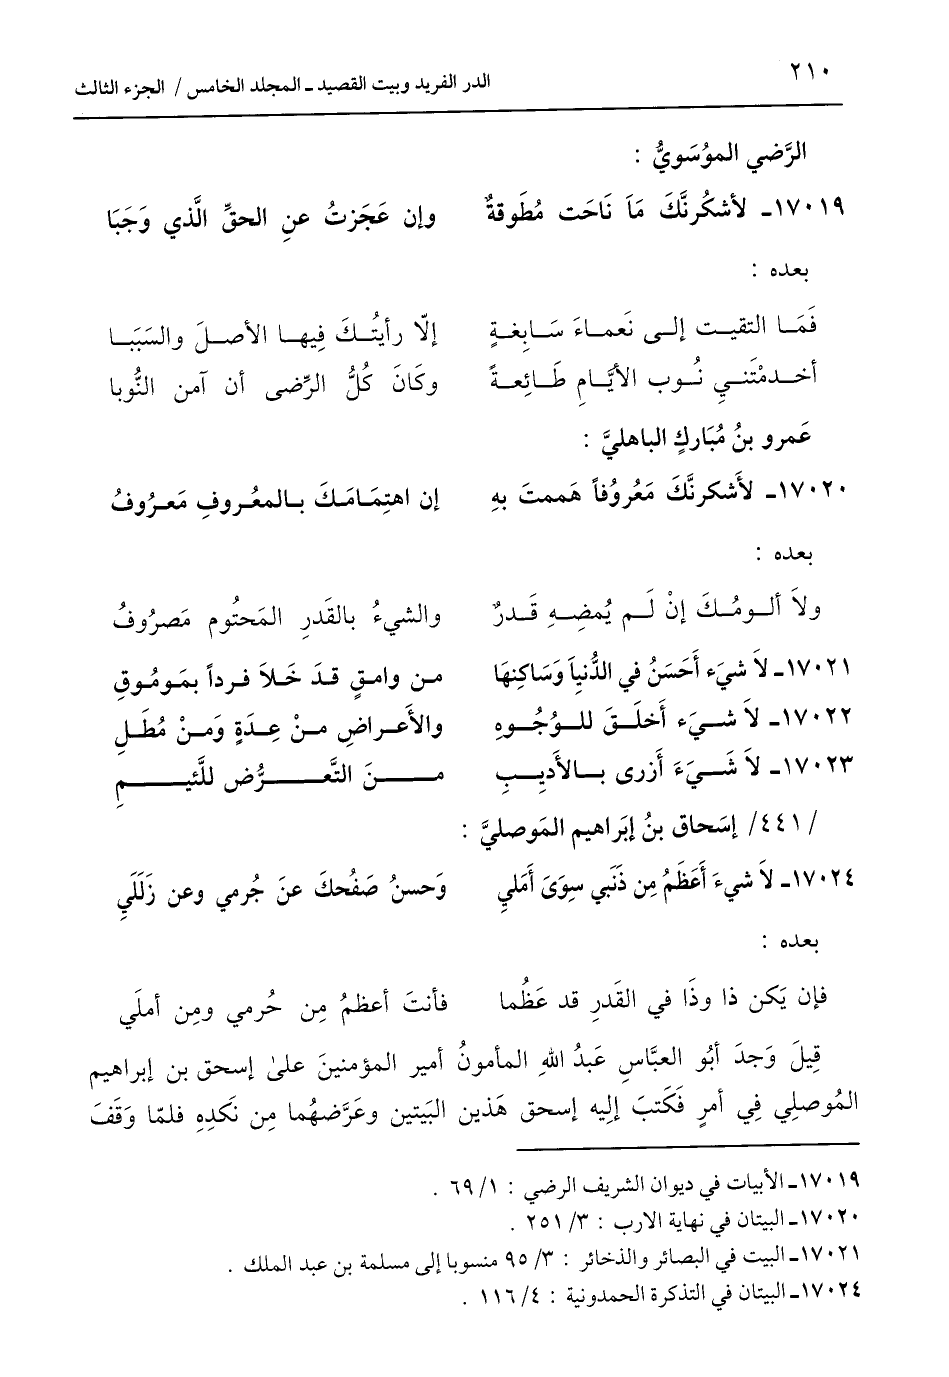 ٢١٠
الدر الفريد وبيت القصيد ـ المجلد الخامس / الجزء الثالث
الرَّضي الموُسَويُّ :
١٧٠١٩ـ لأشكُرنَّكَ مَا نَاحَت مُطَوقةٌ وإن عَجَزتُ عنِ الحقِّ الَّذي وَجَبَا
بعده :
فَمَا التقيت إلى نَعماءَ سَابِغةٍ إلّا رأيتُكَ فِيها الأصلَ والسَبَبا
أخدمْتَنيِ نُوب الأيَّامِ طَائِعةً وكَانَ كُلُّ الرِّضى أن آمن النُّوبا
عَمرو بنُ مُبَاركٍ الباهليَّ :
١٧٠٢٠ـ لأَشكرنَّكَ مَعْروُفاً هَممتَ بهِ إن اهتِمَامَكَ بالمعْروفِ مَعرُوفُ
بعده :
ولاَ ألومُكَ إنْ لَم يُمضِهِ قَدرٌ والشيءُ بالقَدرِ المَحتُوم مَصرُوفُ
١٧٠٢١ـ لاَ شيَء أَحَسَنُ في الدُّنيَا وَسَاكِنهَا من وامقٍ قدَ خَلاَ فرداً بمَومُوقِ
١٧٠٢٢ـ لاَ شيَء أَخلَقَ للوُجُوهِ والأَعراضِ منْ عِدَةٍ وَمنْ مُطَلِ
١٧٠٢٣ـ لاَ شَيءَ أَزرى بالأَدِيبِ منَ التَّعرُّض للَّئيمِ
/ ٤٤١/ إسَحاق بنُ إبَراهيم المَوصليَّ :
١٧٠٢٤ـ لاَ شيءَ أَعَظمُ مِن ذَنَبي سِوَىَ أَمَليِ وَحسنُ صَفُحكَ عنَ جُرمي وعن زَلَليِ
بعده :
فإن يَكن ذا وذَا في القَدرِ قد عَظُما فأنتَ أعظمُ مِن حُرمي ومِن أملَي
قِيلَ وَجدَ أبُو العبَّاسِ عَبدُ اللهِ المأمونُ أمير المؤمنينَ علىٰ إسحق بن إبراهيم
المُوصلِي فِي أمرٍ فَكَتبَ إليه إسحق هَذين البَيتين وعَرَّضهُما مِن نَكدِهِ فلمّا وَقَفَ
١٧٠١٩ـ الأبيات في ديوان الشريف الرضي : ١/ ٦٩ .
١٧٠٢٠ـ البيتان في نهاية الارب : ٣/ ٢٥١ .
١٧٠٢١ـ البيت في البصائر والذخائر : ٣/ ٩٥ منسوبا إلى مسلمة بن عبد الملك .
١٧٠٢٤ـ البيتان في التذكرة الحمدونية : ٤/ ١١٦ .